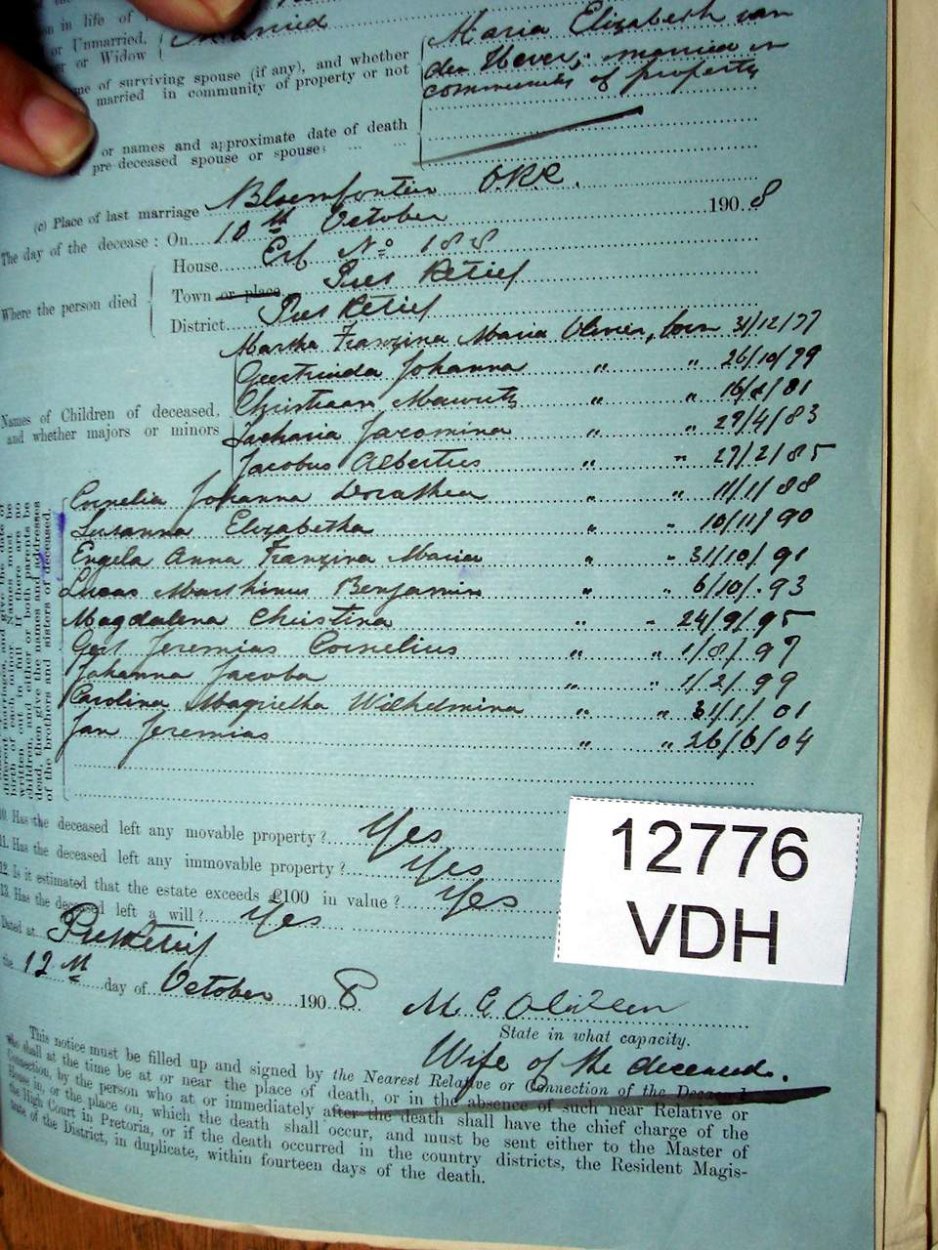 on in life of
or Unmarried, Married
er or Widow
Maria Elizabeth van
me of surviving spouse (if any), and whether den Hever; married in
married in community of property or not community of property
or names and approximate date of death
pre-deceased spouse or spouses ... ...
(c) Place of last marriage Bloemfontein O.R.C.
The day of the decease: On 10th October 1908
House Erf No 188
Where the person died Town or place Piet Retief
District Piet Retief
Martha Franzina Maria Olivier, born 31/12/77
Geertruida Johanna " " 26/10/79
Christiaan Mauritz " " 16/2/81
Zacharia Jacomina " " 29/4/83
Names of Children of deceased,
and whether majors or minors
Jacobus Albertus " " 27/2/85
Cornelia Johanna Dorathea " " 11/11/88
Susanna Elizabetha " " 10/11/90
Engela Anna Franzina Maria " " 31/10/91
Lucas Marthinus Benjamin " " 6/10/93
Magdalena Christina " " 24/9/95
Gert Jeremias Cornelius " " 1/8/97
Johanna Jacoba " " 1/2/99
Carolina Magrietha Wilhelmina " " 31/1/01
Jan Jeremias " " 26/6/04
different marriages, and give the date of
birth of each minor. Names must be
written out in full. If there are no
children, and either or both parents be
dead, then give the names and addresses
of the brothers and sisters of deceased.
10. Has the deceased left any movable property? Yes
11. Has the deceased left any immovable property? Yes
12. Is it estimated that the estate exceeds £100 in value? Yes
13. Has the deceased left a will? Yes
Dated at Piet Retief
the 12th day of October 1908
M E Olivier
State in what capacity.
Wife of the deceased.
12776
VDH
This notice must be filled up and signed by the Nearest Relative or Connection of the Deceased
who shall at the time be at or near the place of death, or in the absence of such near Relative or
Connection, by the person who at or immediately after the death shall have the chief charge of the
House in, or the place on, which the death shall occur, and must be sent either to the Master of
the High Court in Pretoria, or if the death occurred in the country districts, the Resident Magis-
trate of the District, in duplicate, within fourteen days of the death.